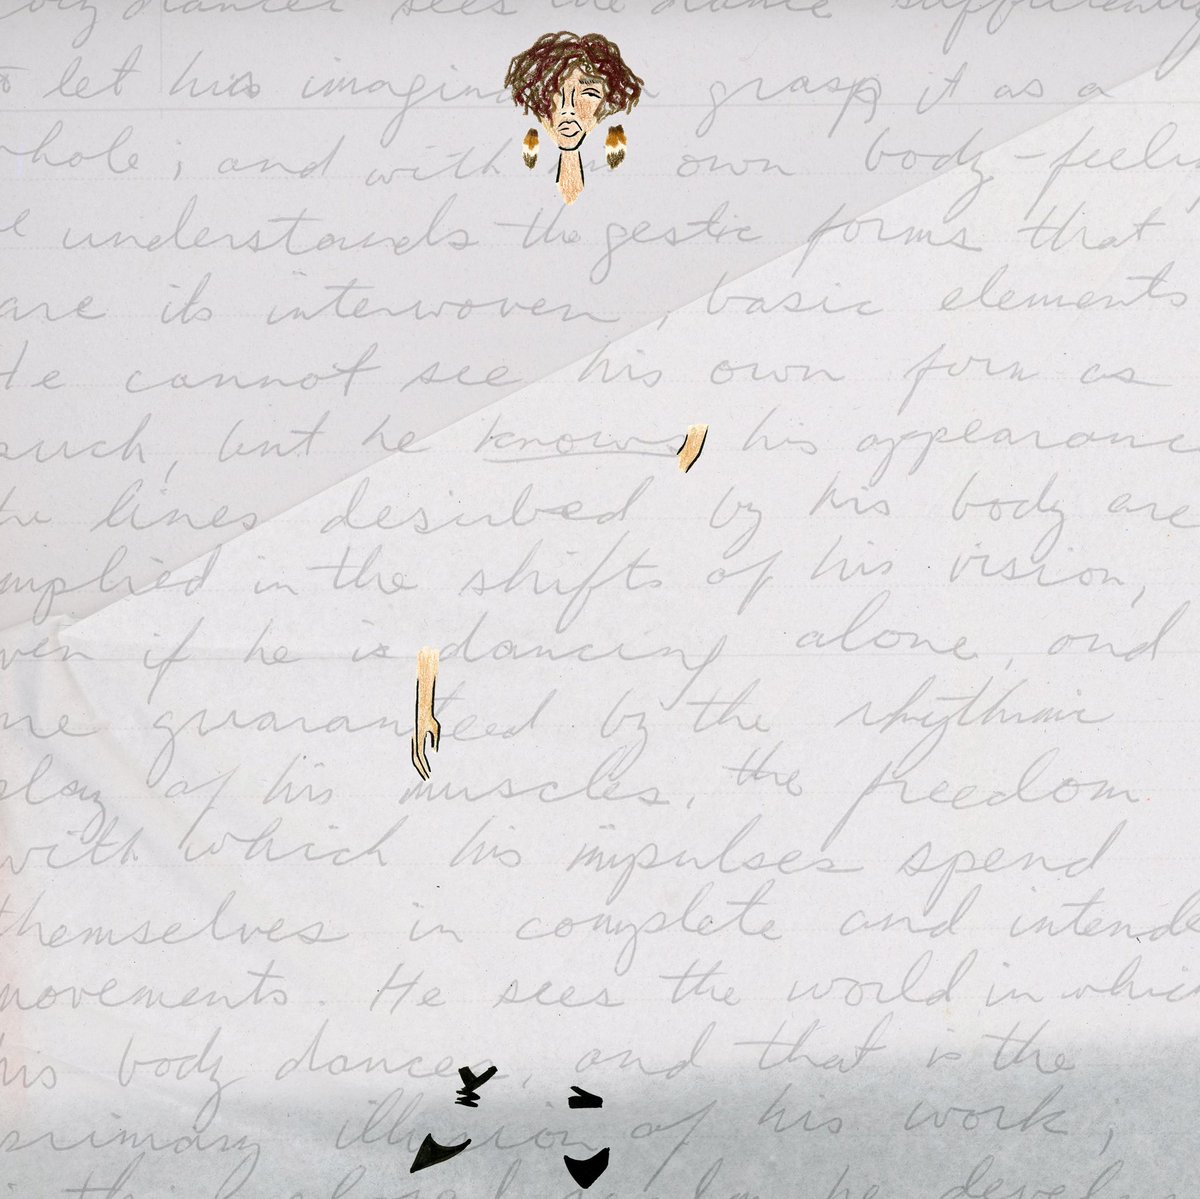 dancer sees the dance sufficiently
to let his imagin grasp it as a
whole; and with own body-feelin
understands the gestic forms that
are its interwoven, basic elements
He cannot see his own form as
such, but he knows his appearanc
the lines described by his body are
mplied in the shifts of his vision,
ven if he is dancing alone, and
are guaranteed by the rhythmic
play of his muscles, the freedom
with which his impulses spend
themselves in complete and intende
movements. He sees the world in which
his body dances, and that is the
primary illusion of his work;
in this he develo